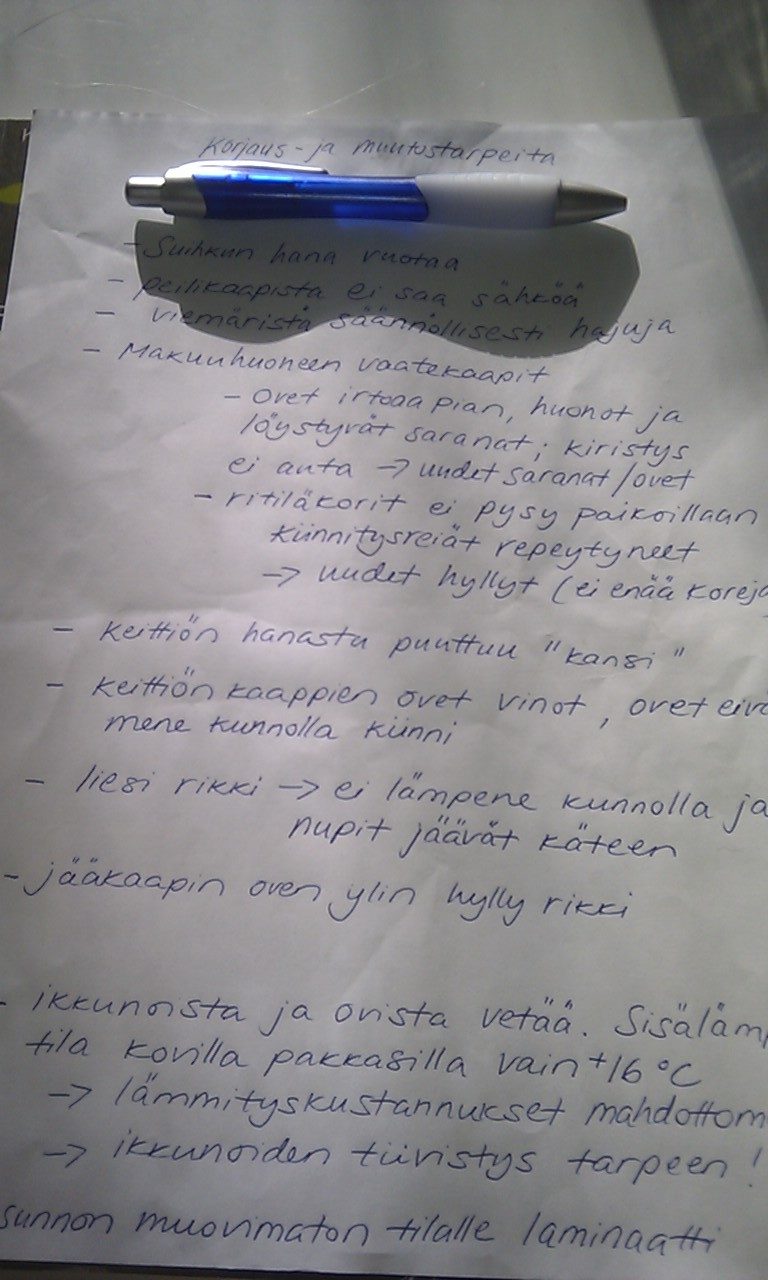 Korjaus- ja muutostarpeita
- Suihkun hana vuotaa
- peilikaapista ei saa sähköä
- viemäristä säännöllisesti hajuja
- Makuuhuoneen vaatekaapit
- ovet irtoaa pian, huonot ja
löystyvät saranat; kiristys
ei auta -> uudet saranat/ovet
- ritiläkorit ei pysy paikoillaan
kiinnitysreiät repeytyneet
-> uudet hyllyt (ei enää koreja
- keittiön hanasta puuttuu "kansi"
- keittiön kaappien ovet vinot, ovet eivä
mene kunnolla kiinni
- liesi rikki -> ei lämpene kunnolla ja
nupit jäävät käteen
- jääkaapin oven ylin hylly rikki
- ikkunoista ja ovista vetää. Sisäläm
tila kovilla pakkasilla vain +16 °C
-> lämmityskustannukset mahdottom
-> ikkunoiden tiivistys tarpeen!
sunnon muovimaton tilalle laminaatti